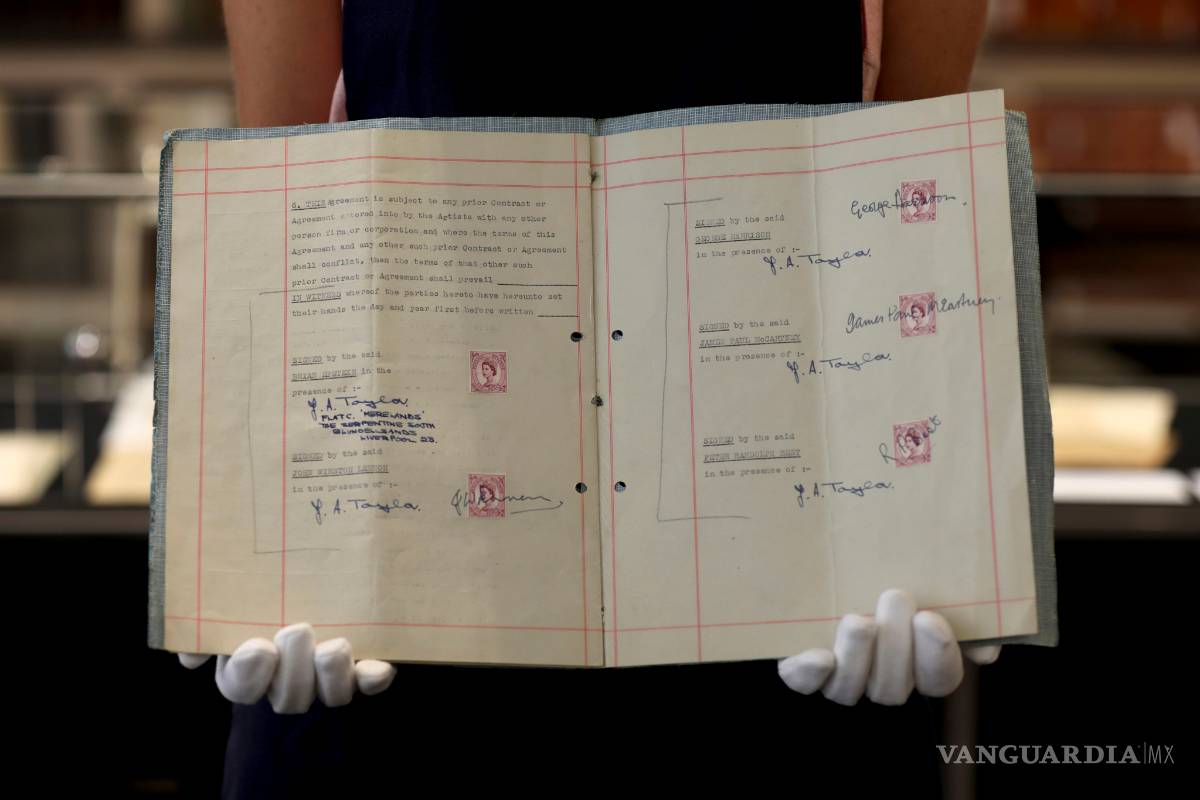 6. THIS Agreement is subject to any prior Contract or
Agreement entered into by the Artists with any other
person firm or corporation and where the terms of this
Agreement and any other such prior Contract or Agreement
shall conflict, then the terms of that other such
prior Contract or Agreement shall prevail
IN WITNESS whereof the parties hereto have hereunto set
their hands the day and year first before written
SIGNED by the said
BRIAN EPSTEIN in the
presence of :-
J. A. Tayla.
FLAT C. 'MERELANDS'
THE SERPENTINE SOUTH
BLUNDELLSANDS
LIVERPOOL 23.
SIGNED by the said
JOHN WINSTON LENNON
in the presence of :-
J. A. Tayla.
JWLennon
SIGNED by the said
GEORGE HARRISON
in the presence of :-
George Harrison.
J. A. Tayla.
SIGNED by the said
JAMES PAUL McCARTNEY
in the presence of :-
James Paul McCartney.
J. A. Tayla.
SIGNED by the said
PETER RANDOLPH BEST
in the presence of :-
R P Best
J. A. Tayla.
VANGUARDIA|MX